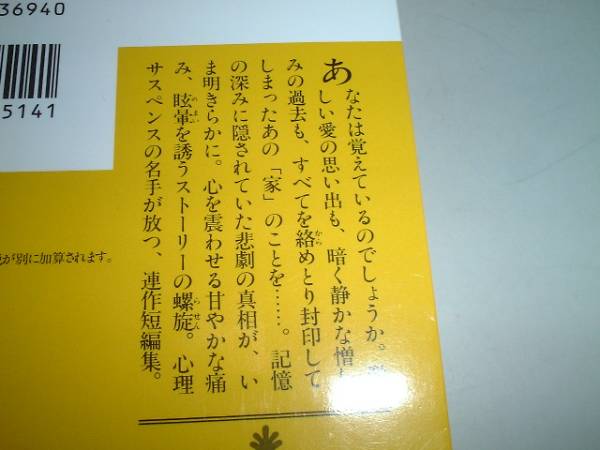 36940
5141
が別に加算されます。
あなたは覚えているのでしょうか。
しい愛の思い出も、暗く静かな憎し
みの過去も、すべてを絡めとり封印して
しまったあの「家」のことを……。記憶
の深みに隠されていた悲劇の真相が、い
ま明きらかに。心を震わせる甘やかな痛
み、眩暈を誘うストーリーの螺旋。心理
サスペンスの名手が放つ、連作短編集。